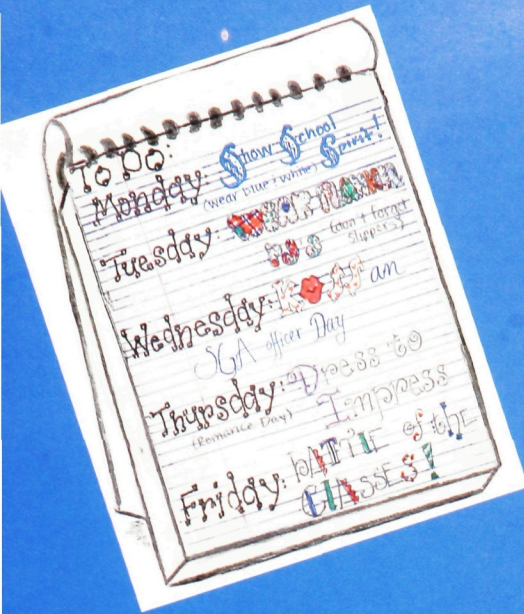 To Do:
Monday: Show School Spirit!
(wear blue & white)
Tuesday: WEAR FLANNEL
PJ'S (don't forget slippers)
Wednesday: an
SGA officer Day
Thursday: Dress to
(Romance Day) Impress
Friday: BATTLE of the
CLASSES!